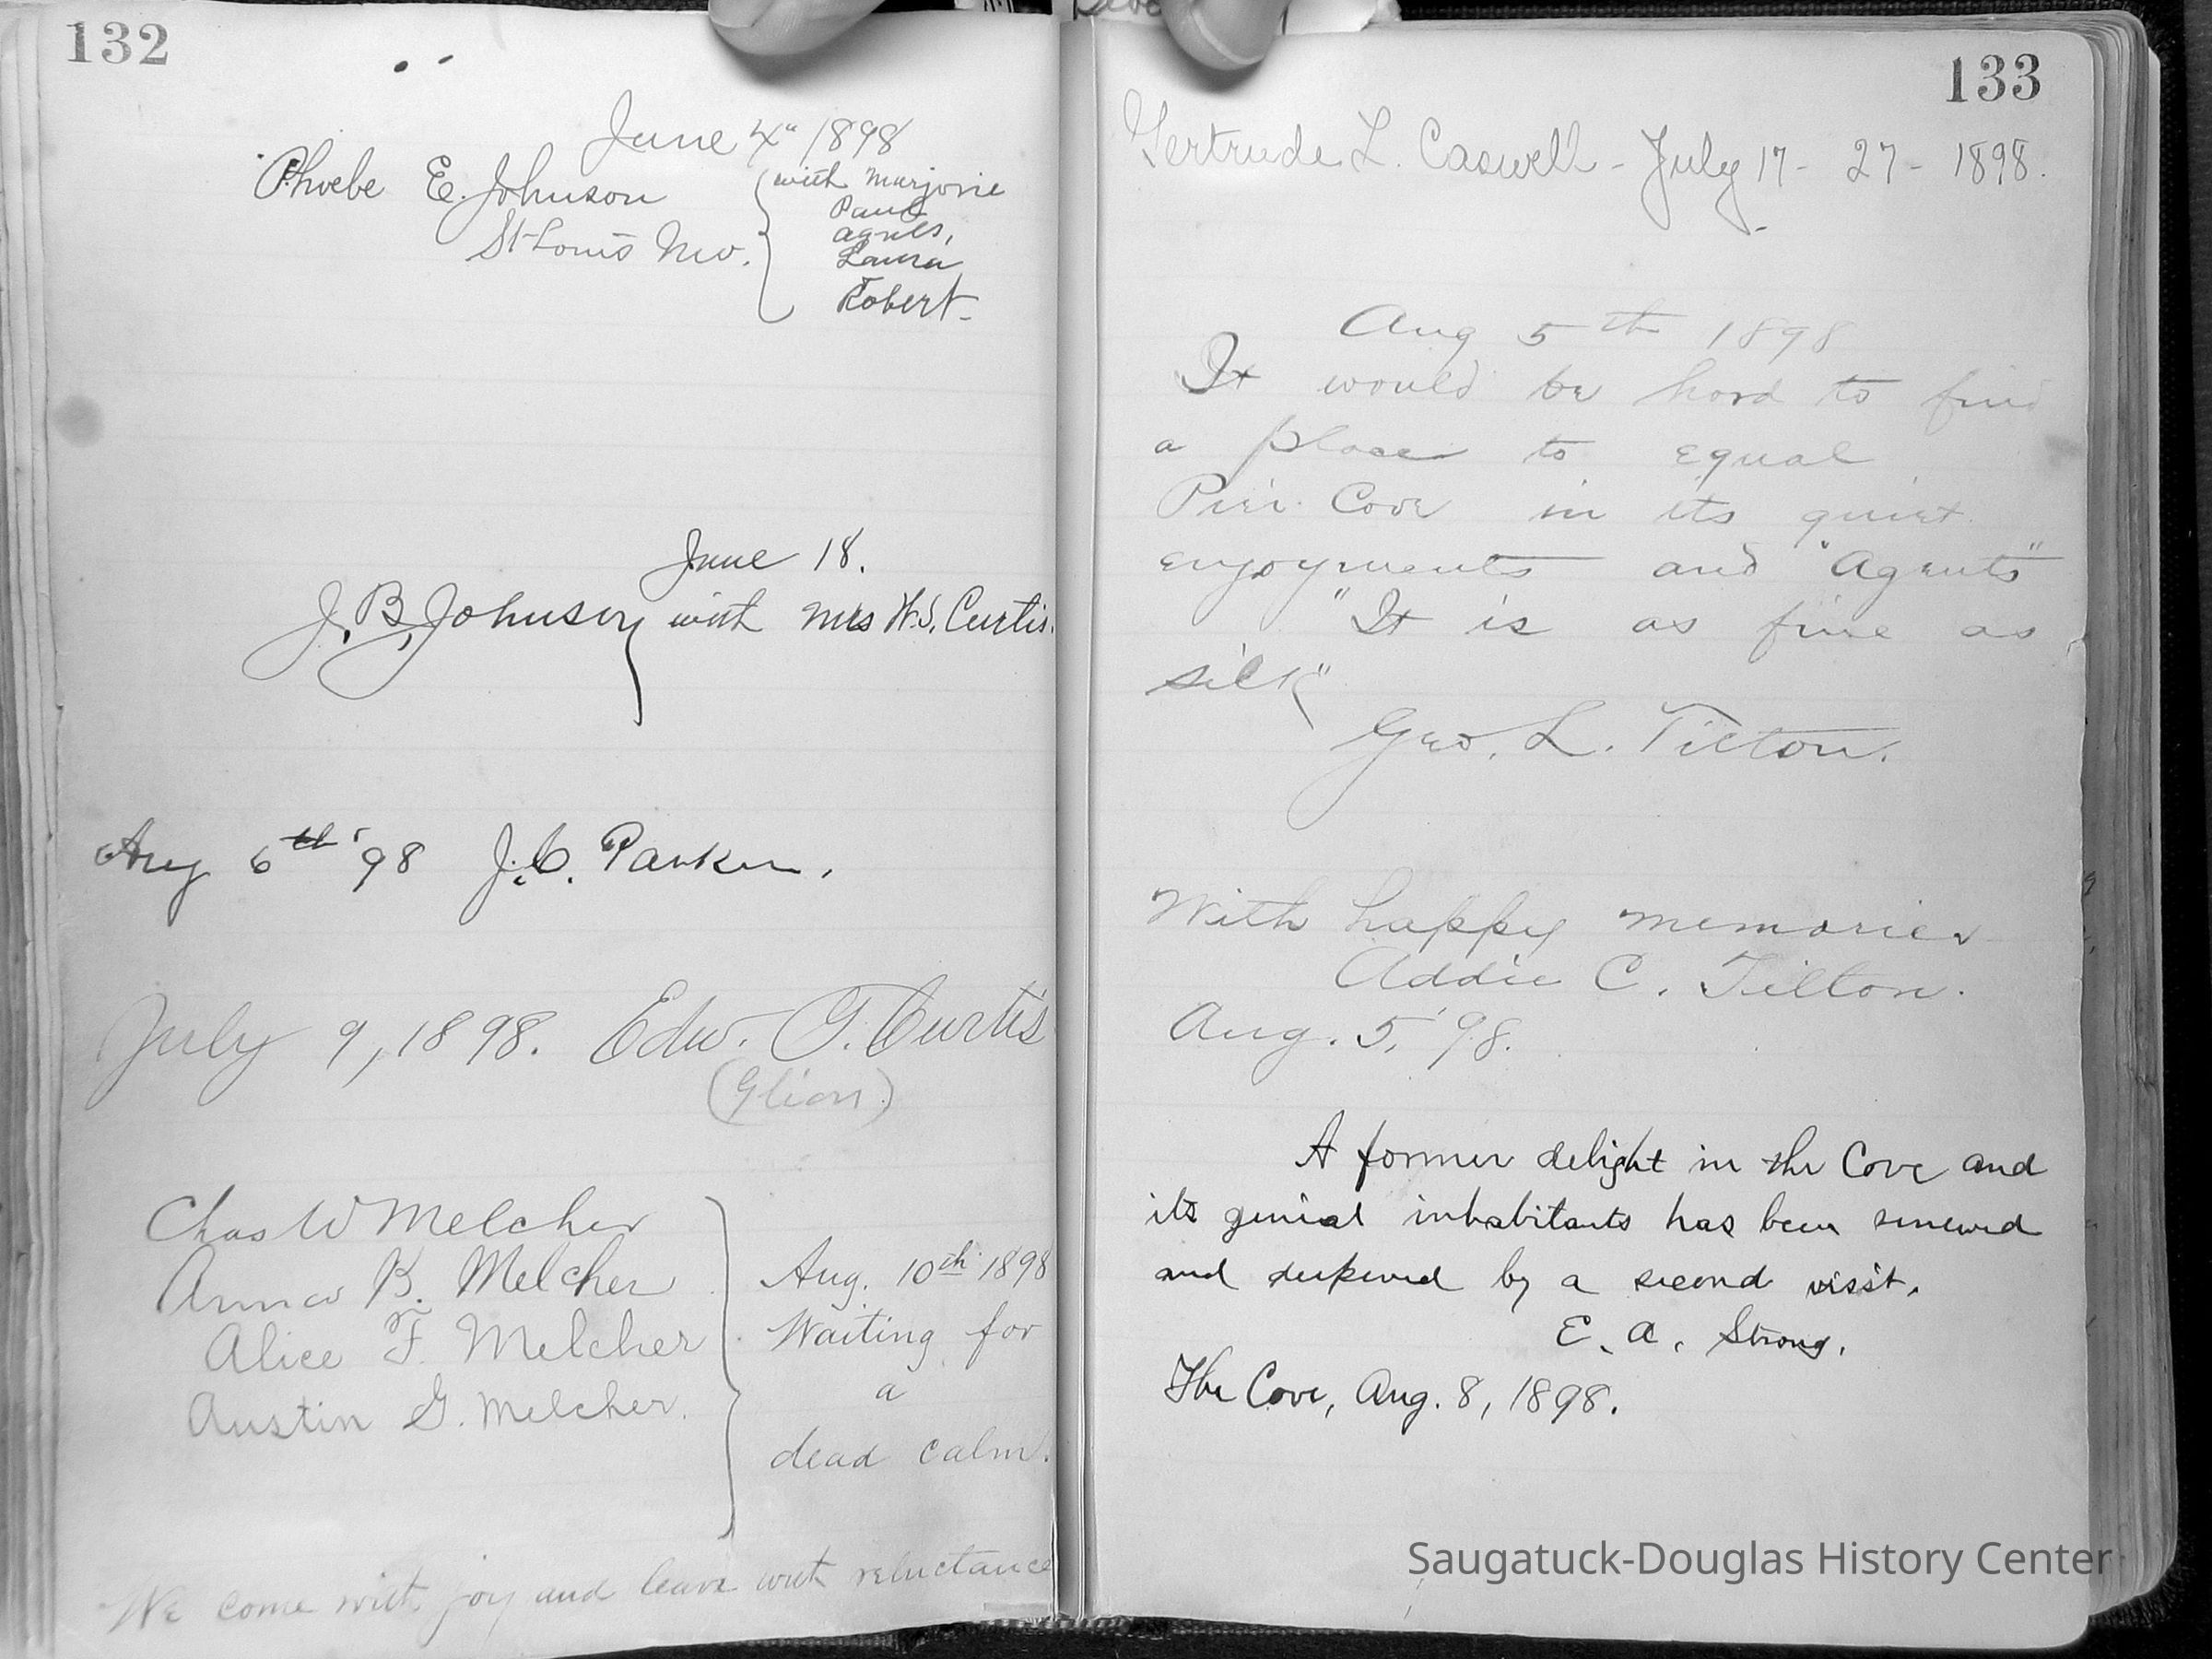 132
June 4" 1898
Phoebe E. Johnson
St Louis Mo.
with Marjorie
Paul
Agnes,
Laura
Robert-
June 18.
J. B. Johnson with Mrs W.S. Curtis.
Aug 6th '98 J.C. Parker.
July 9, 1898. Edw. T. Curtis
(Glion)
Chas W Melcher
Anna K. Melcher
Alice F. Melcher
Austin G. Melcher.
Aug. 10th 1898
Waiting for
a
dead calm.
We come with joy and leave with reluctance
133
Gertrude L. Caswell - July 17 - 27 - 1898.
Aug 5th 1898
It would be hard to find
a place to equal
Pier Cove in its quiet
enjoyments and "Agents"
"It is as fine as
silk"
Geo. L. Tilton.
With happy memories
Addie C. Tilton.
Aug. 5, '98.
A former delight in the Cove and
its genial inhabitants has been renewed
and deepened by a second visit.
E. A. Strong.
The Cove, Aug. 8, 1898.
Saugatuck-Douglas History Center